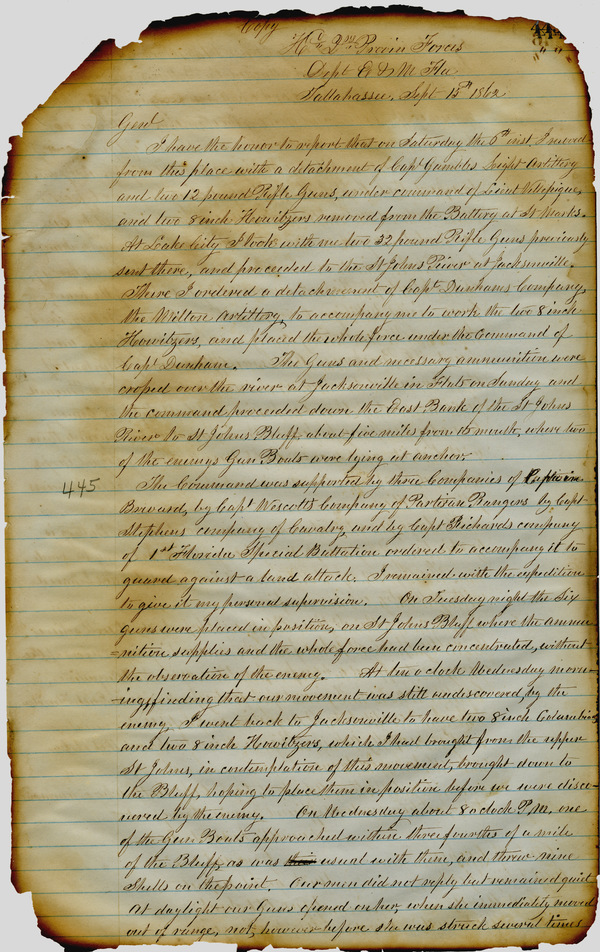 Copy
444
Hd Qrs Provin Forces
Dept E & M Fla
Tallahassee, Sept 15th 1862
Genl
I have the honor to report that on Saturday the 6th inst I moved
from this place with a detachment of Capt Gambles Light Artillery
and two 12 pound Rifle Guns, under command of Lieut Villepigue,
and two 8 inch Howitzers removed from the Battery at St Marks.
At Lake City I took with me two 32 pound Rifle Guns previously
sent there, and proceeded to the St Johns River at Jacksonville.
There I ordered a detachment of Capt Dunhams Company,
the Milton Artillery, to accompany me to work the two 8 inch
Howitzers, and placed the whole force under the Command of
Capt Dunham. The Guns and necessary ammunition were
croped over the river at Jacksonville in Flats on Sunday and
the command proceeded down the East Bank of the St Johns
River to St Johns Bluff about five miles from its mouth, where two
of the enemys Gun Boats were lying at anchor.
The Command was supported by three Companies of Captain
445
Brevard, by Capt Wescotts Company of Partisan Rangers by Capt
Stephens company of Cavalry, and by Capt Richards company
of 1st Florida Special Battalion ordered to accompany it to
guard against a land attack. I remained with the expedition
to give it my personal supervision. On Tuesday night the Six
guns were placed in position, on St Johns Bluff where the ammu
=nition supplies and the whole force had been concentrated, without
the observation of the enemy. At ten o clock Wednesday morn-
-ing finding that our movement was still undiscovered, by the
enemy, I went back to Jacksonville to have two 8 inch Columbiads
and two 8 inch Howitzers, which I had brought from the upper
St Johns, in contemplation of this movement, brought down to
the Bluff, hoping to place them in position before we were disco-
vered by the enemy. On Wednesday about 8 o clock P.M. one
of the Gun Boats approached within three fourths of a mile
of the Bluff, as was usual with them, and threw nine
Shells on the point. Our men did not reply but remained quiet
At daylight our Guns opened on her, when she immediately moved
out of range, not, however before she was struck several times